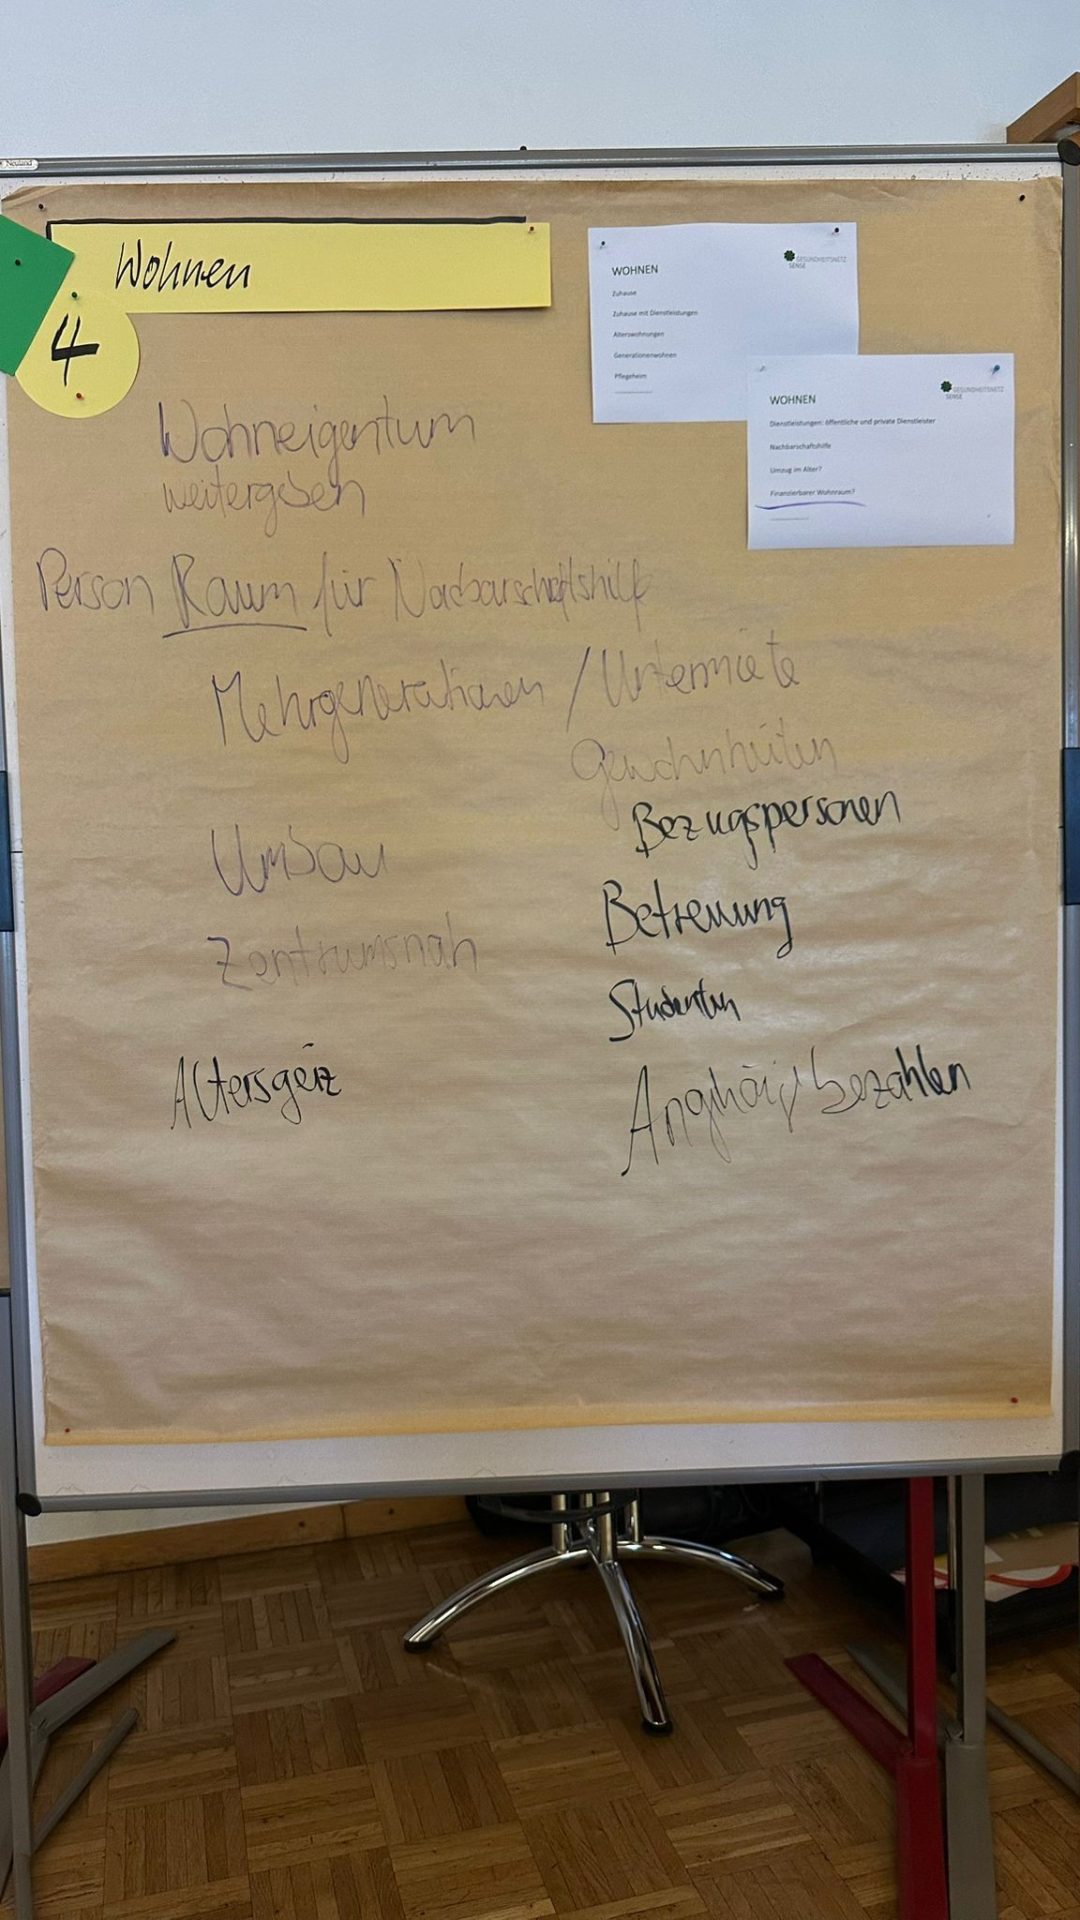 Wohnen
4
WOHNEN
GESUNDHEITSNETZ
SENSE
Zuhause
Zuhause mit Dienstleistungen
Alterswohnungen
Generationenwohnen
Pflegeheim
WOHNEN
GESUNDHEITSNETZ
SENSE
Dienstleistungen: öffentliche und private Dienstleister
Nachbarschaftshilfe
Umzug im Alter?
Finanzierbarer Wohnraum?
Wohneigentum
weitergeben
Person Raum für Nachbarschaftshilf
Mehrgenerationen / Untermiete
Gewohnheiten
Bezugspersonen
Umbau
Betreuung
Zentrumsnah
Studenten
Altersgeiz
bezahlen